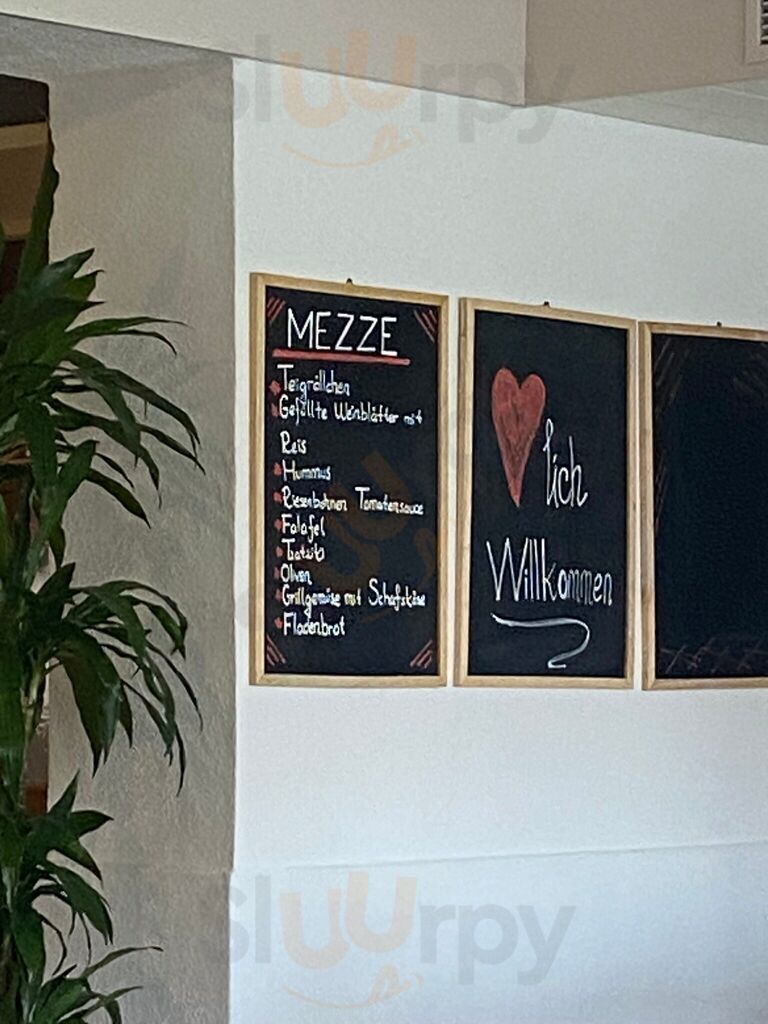 sluurpy
MEZZE
Teigröllchen
Gefüllte Weinblätter mit
Reis
Hummus
Riesenbohnen Tomatensauce
Falafel
Tzatsiki
Oliven
Grillgemüse mit Schafskäse
Fladenbrot
lich
Willkommen
sluurpy